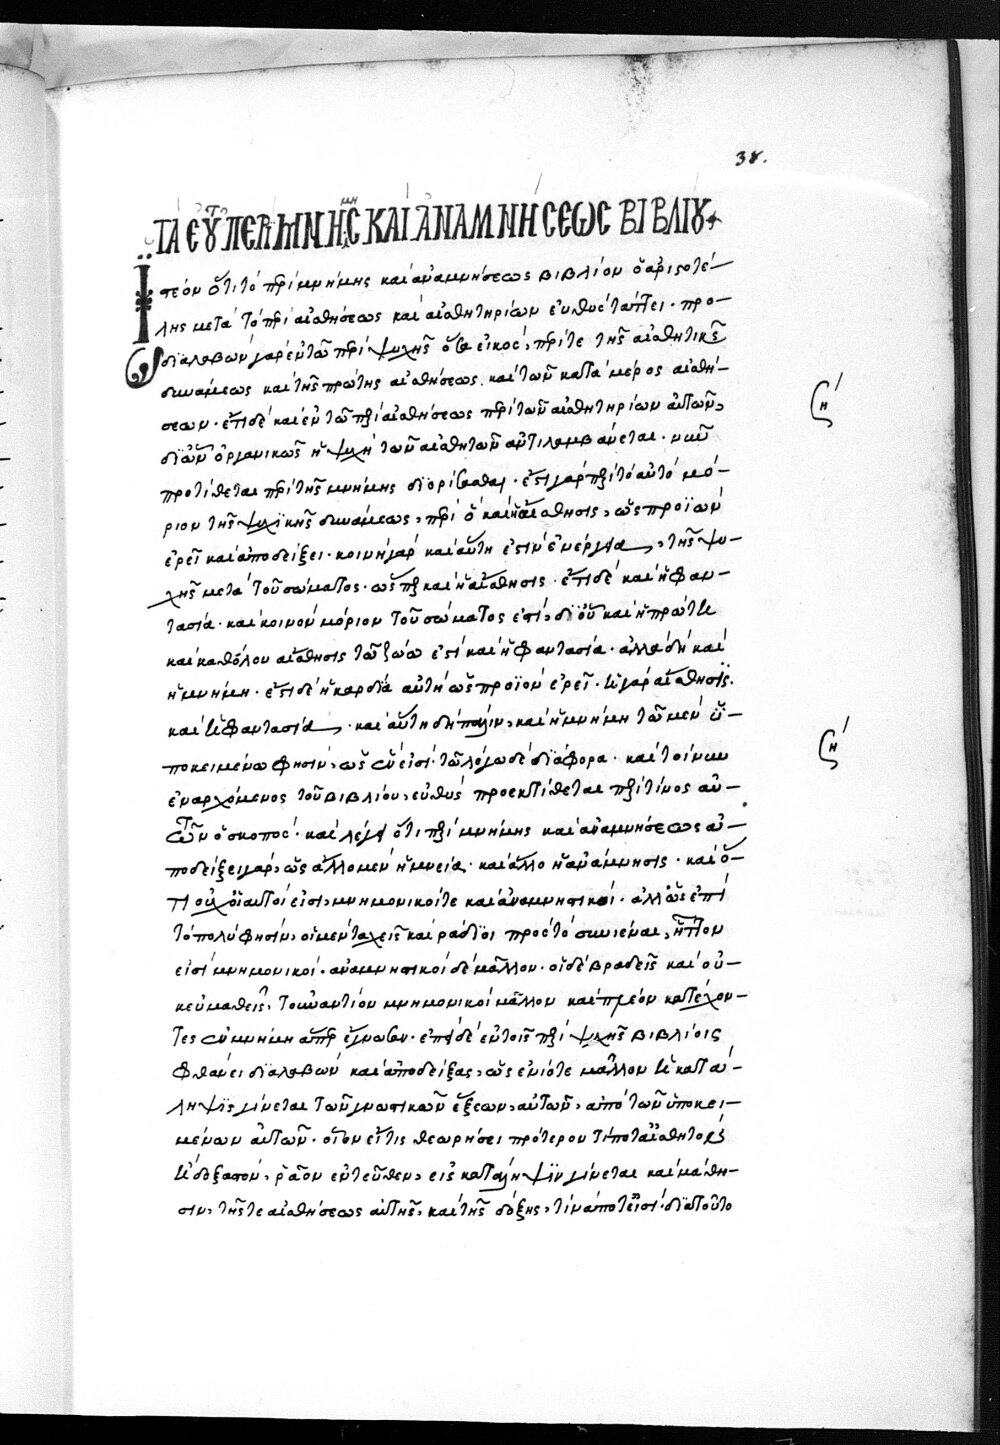 38.
ΤΑ ΕΙΣ Τὸ ΠΕΡὶ ΜΝΉΜΗΣ ΚΑὶ ἈΝΑΜΝΉΣΕΩΣ ΒΙΒΛΊΟΥ +
Ἰστέον ὅτι τὸ περὶ μνήμης καὶ ἀναμνήσεως βιβλίον ὁ ἀριστοτέ-
λης μετὰ τὸ περὶ αἰσθήσεως καὶ αἰσθητηρίων εὐθὺς τάττει· προ-
διαλαβὼν γὰρ ἐν τῶ περὶ ψυχῆς ὅσα εἰκὸς, περί τε τῆς αἰσθητικῆς
δυνάμεως καὶ τῆς πρώτης αἰσθήσεως. καὶ τῶν κατὰ μέρος αἰσθή-
σεων· ἔτι δὲ καὶ ἐν τῶ περὶ αἰσθήσεως περὶ τῶν αἰσθητηρίων αὐτῶν,
δι' ὧν ὀργανικῶς ἡ ψυχὴ τῶν αἰσθητῶν ἀντιλαμβάνεται· νῦν
προτίθεται περὶ τῆς μνήμης διορίσασθαι· ἔστι γὰρ περὶ τὸ αὐτὸ μό-
ριον τῆς ψυχικῆς δυνάμεως, περὶ ὃ καὶ ἡ αἴσθησις, ὡς προϊὼν
ἐρεῖ καὶ ἀποδείξει· κοινὴ γὰρ καὶ αὕτη ἐστὶν ἐνέργεια, τῆς ψυ-
χῆς μετὰ τοῦ σώματος· ὥσπερ καὶ ἡ αἴσθησις· ἔτι δὲ καὶ ἡ φαν-
τασία· καὶ κοινὸν μόριον τοῦ σώματος ἐστὶ, δι' οὗ καὶ ἡ πρώτη
καὶ καθόλου αἴσθησις τῶ ζώω ἐστὶ καὶ ἡ φαντασία· ἀλλὰ δὴ καὶ
ἡ μνήμη· ἔστι δὲ ἡ καρδία αὐτὴ ὡς προϊὸν ἐρεῖ· ἡ γὰρ αἴσθησις.
καὶ ἡ φαντασία· καὶ αὕτη δὴ πάλιν, καὶ ἡ μνήμη τῶ μὲν ὑ-
ποκειμένω φησὶν, ὡς ἕν εἰσι· τῶ λόγω δὲ διάφορα· καὶ τοίνυν
ἐναρχόμενος τοῦ βιβλίου, εὐθὺς προεκτίθεται περὶ τίνος αὐ-
τῶ ὁ σκοπός· καὶ λέγει ὅτι περὶ μνήμης καὶ ἀναμνήσεως ἀ-
ποδείξει γὰρ, ὡς ἄλλο μὲν ἡ μνεία· καὶ ἄλλο ἡ ἀνάμνησις· καὶ ὅ-
τι οὐχ οἱ αὐτοί εἰσι, μνημονικοί τε καὶ ἀναμνηστικοί· ἀλλ' ὡς ἐπὶ
τὸ πολὺ φησὶν, οἱ μὲν ταχεῖς καὶ ῥάδιοι πρὸς τὸ συνιέναι, ἧττον
εἰσὶ μνημονικοί· ἀναμνηστικοὶ δὲ μᾶλλον· οἱ δὲ βραδεῖς καὶ οὐ-
κ εὐμαθεῖς, τοὐναντίον μνημονικοὶ μᾶλλον καὶ πλέον κατέχον-
τες ἐν μνήμη ἅπερ ἔγνωσαν· ἐπεὶ δὲ ἐν τοῖς περὶ ψυχῆς βιβλίοις
φθάνει διαλαβὼν καὶ ἀποδείξας, ὡς ἐνίοτε μᾶλλον ἡ κατά-
ληψις γίνεται τῶν γνωστικῶν ἕξεων, αὐτῶν, ἀπὸ τῶν ὑποκει-
μένων αὐτῶν· οἷον εἴ τις θεωρήσει πρότερον τί ποτ' αἰσθητὸν
ἢ δοξαστὸν, ῥᾶον ἐντεῦθεν, εἰς κατάληψιν γίνεται καὶ μάθη-
σιν, τῆς τε αἰσθήσεως αὐτῆς, καὶ τῆς δόξης, τίνά ποτέ εἰσι· διὰ τοῦτο